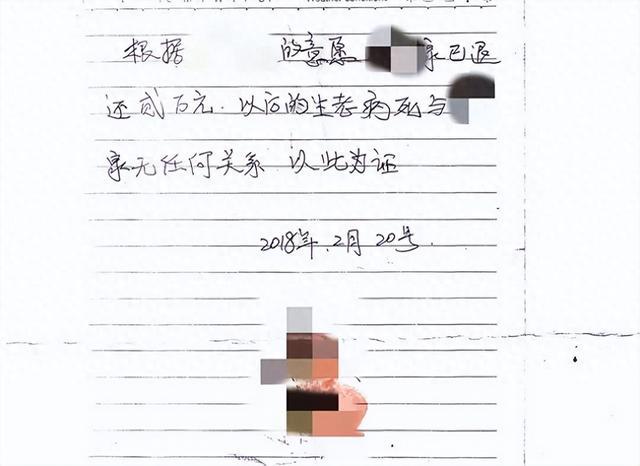 根据 的意愿 家已退
还贰万元.以后的生老病死与
家无任何关系 以此为证
2018年.2月 20号.